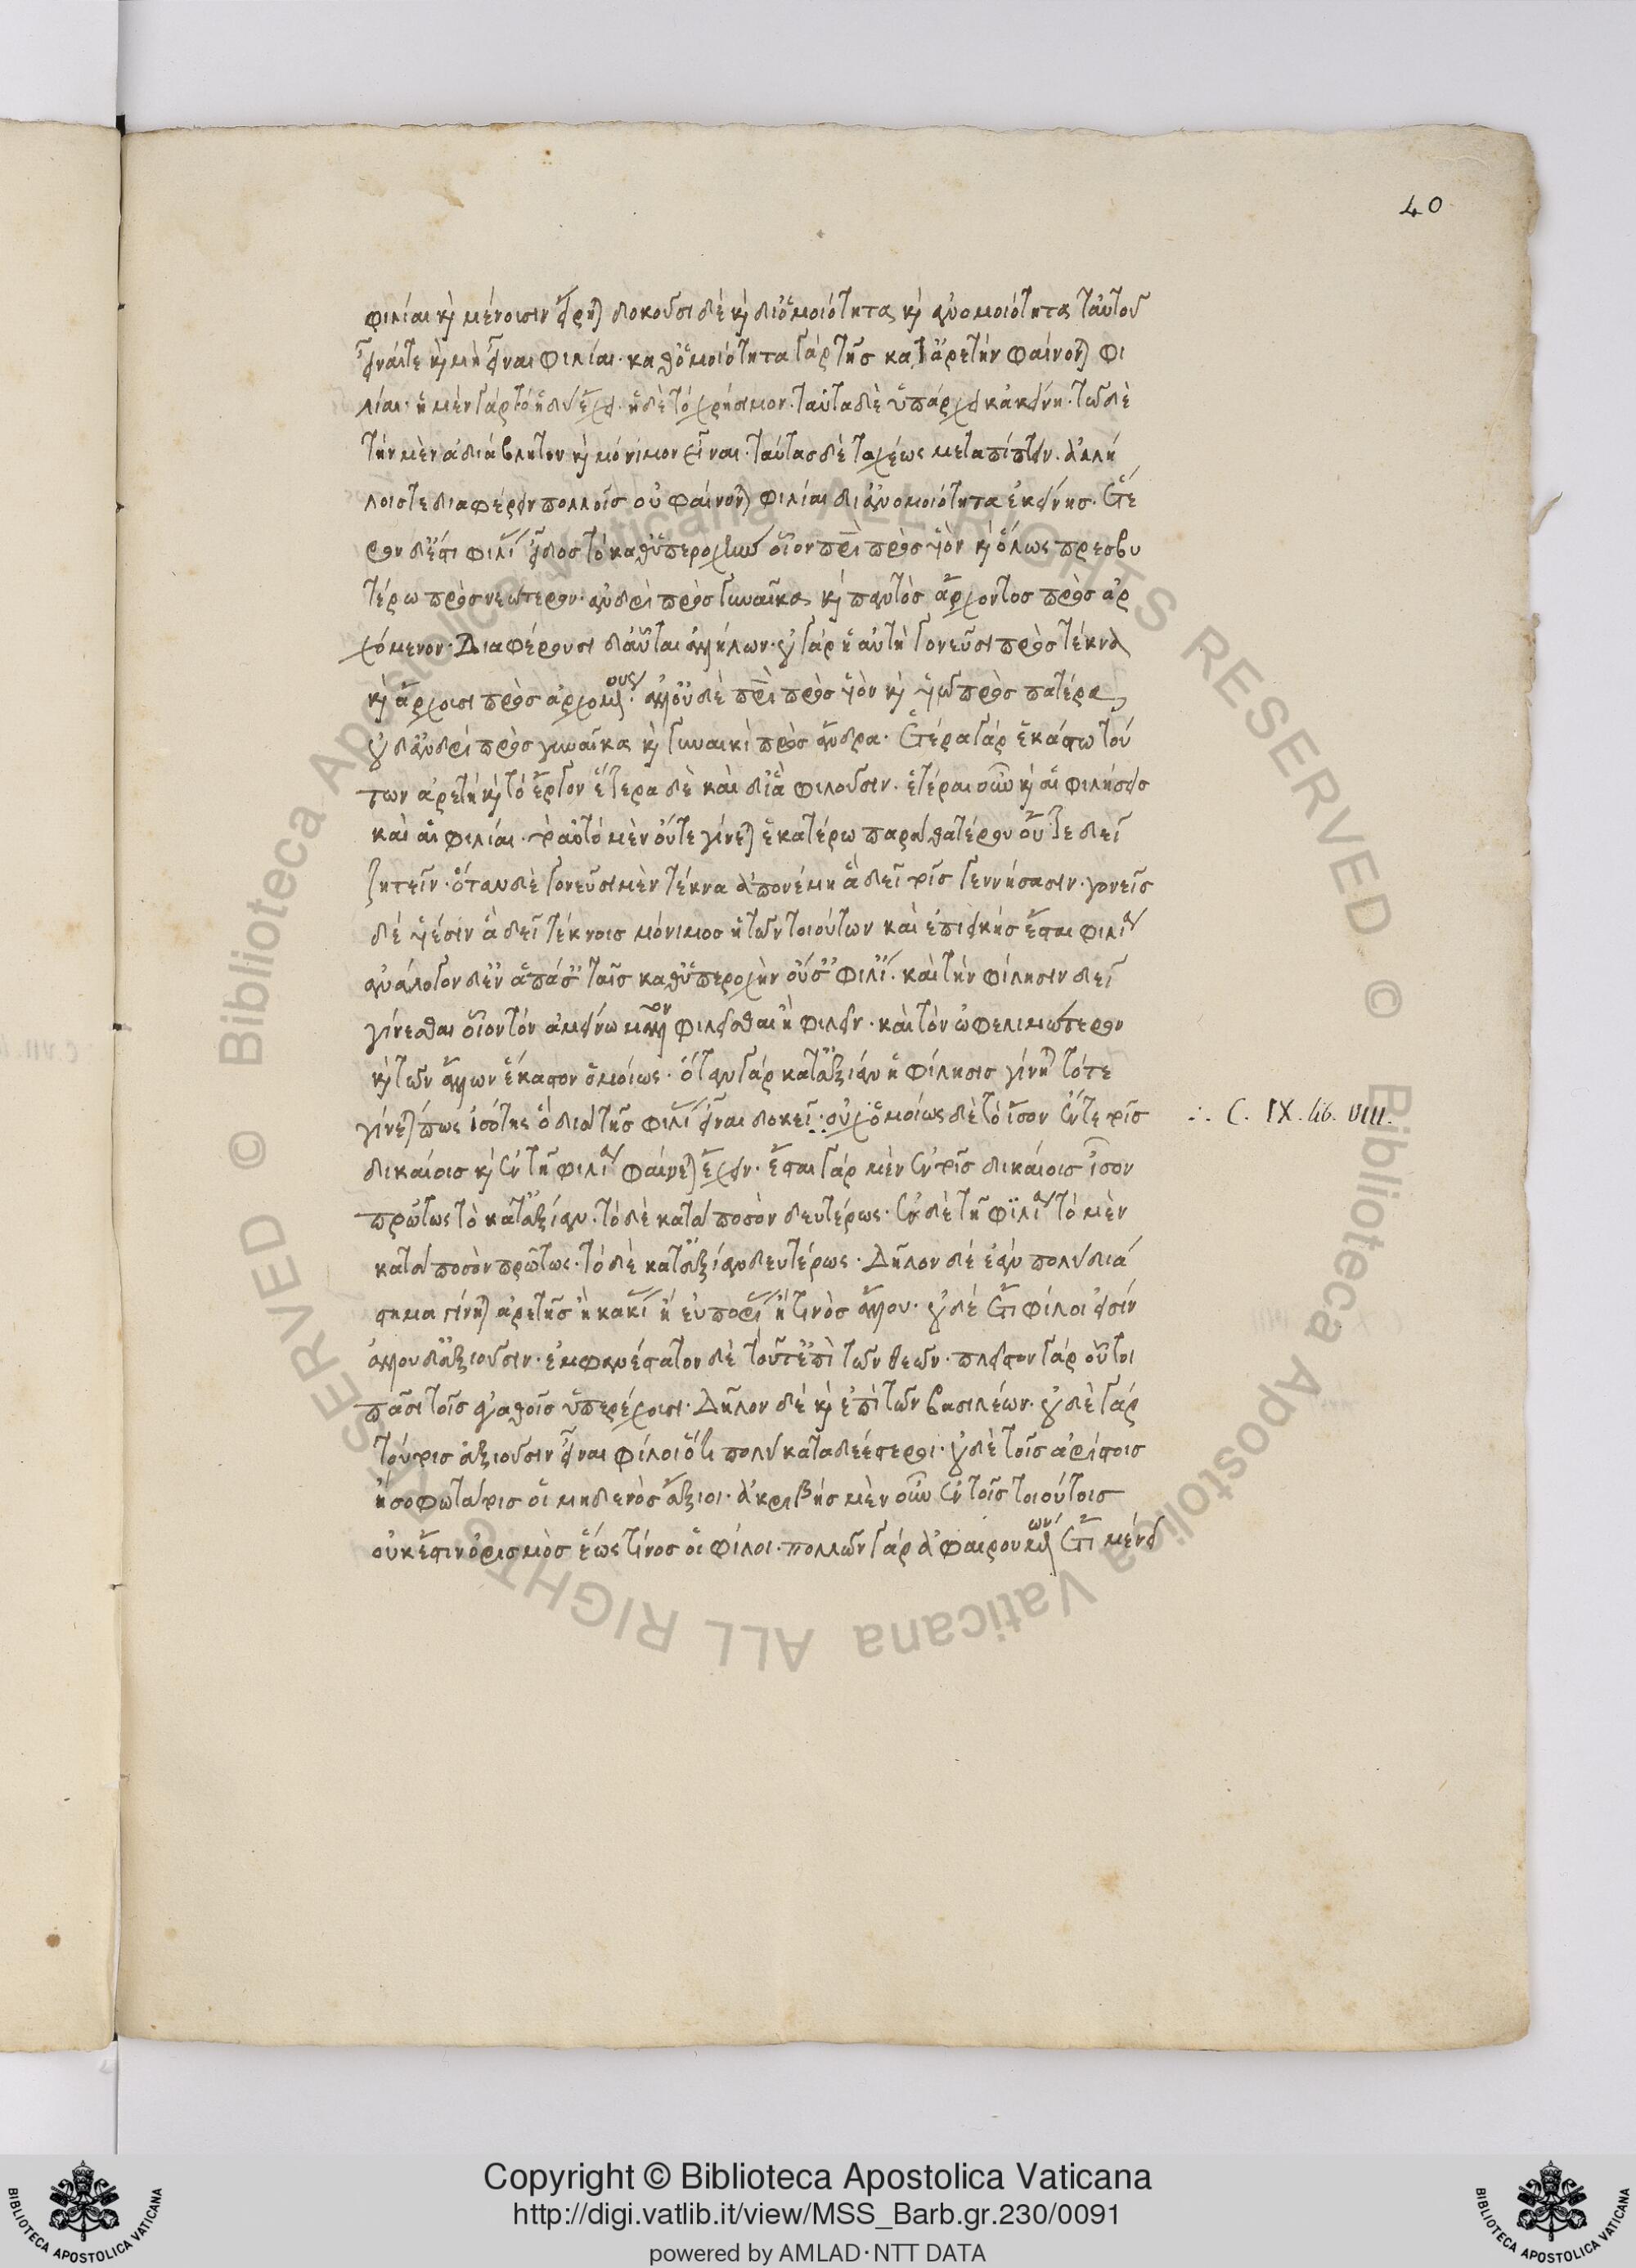 40
φιλίαι καὶ μένουσιν εἴρηται δοκοῦσι δὲ καὶ δι' ὁμοιότητα καὶ ἀνομοιότητα ταὐτοῦ
εἶναί τε καὶ μὴ εἶναι φιλίαι· καθ' ὁμοιότητα γὰρ τῆς κατ' ἀρετὴν φαίνονται φι
λίαι· ἡ μὲν γὰρ τὸ ἡδὺ ἔχει· ἡ δὲ τὸ χρήσιμον· ταῦτα δὲ ὑπάρχει κἀκείνη· τῶ δὲ
τὴν μὲν ἀδιάβλητον καὶ μόνιμον εἶναι· ταύτας δὲ ταχέως μεταπίπτειν· ἀλλή
λοις τε διαφέρειν πολλοῖς οὐ φαίνονται φιλίαι δι' ἀνομοιότητα ἐκείνης· ἕτε
ρον δέ ἐστι φιλίας εἶδος τὸ καθ' ὑπεροχὴν οἷον πατρὶ πρὸς υἱὸν καὶ ὅλως πρεσβυ
τέρω πρὸς νεώτερον· ἀνδρὶ πρὸς γυναῖκα καὶ παντὸς ἄρχοντος πρὸς ἀρ
χόμενον· Διαφέρουσι δ' αὗται ἀλλήλων· οὐ γὰρ ἡ αὐτὴ γονεῦσι πρὸς τέκνα
καὶ ἄρχουσι πρὸς ἀρχομένους· ἀλλ' οὐδὲ πατρὶ πρὸς υἱὸν καὶ υἱῶ πρὸς πατέρα
οὐδ' ἀνδρὶ πρὸς γυναῖκα καὶ γυναικὶ πρὸς ἄνδρα· ἑτέρα γὰρ ἑκάστω τού
των ἀρετὴ καὶ τὸ ἔργον ἕτερα δὲ καὶ δι' ἃ φιλοῦσιν· ἑτέραι οὖν καὶ αἱ φιλήσεις
καὶ αἱ φιλίαι· ταὐτὸ μὲν οὔτε γίνεται ἑκατέρω παρὰ θατέρου οὔτε δεῖ
ζητεῖν· ὅταν δὲ γονεῦσι μὲν τέκνα ἀπονέμη ἃ δεῖ τοῖς γεννήσασιν· γονεῖς
δὲ υἱέσιν ἃ δεῖ τέκνοις μόνιμος ἡ τῶν τοιούτων καὶ ἐπιεικὴς ἔσται φιλία
ἀνάλογον δ' ἐν ἁπάσαις ταῖς καθ' ὑπεροχὴν οὔσαις φιλίαις· καὶ τὴν φίλησιν δεῖ
γίνεσθαι οἷον τὸν ἀμείνω μᾶλλον φιλεῖσθαι ἢ φιλεῖν· καὶ τὸν ὠφελιμώτερον
καὶ τῶν ἄλλων ἕκαστον ὁμοίως· ὅταν γὰρ κατ' ἀξίαν ἡ φίλησις γίνηται τότε
γίνεταί πως ἰσότης ὃ διὰ τῆς φιλίας εἶναι δοκεῖ· οὐχ ὁμοίως δὲ τὸ ἴσον ἔν τε τοῖς
∴ C. IX. lib. VIII.
δικαίοις καὶ ἐν τῆ φιλία φαίνεται ἔχειν· ἔσται γὰρ μὲν ἐν τοῖς δικαίοις ἴσον
πρώτως τὸ κατ' ἀξίαν· τὸ δὲ κατὰ ποσὸν δευτέρως· ἐν δὲ τῆ φιλία τὸ μὲν
κατὰ ποσὸν πρώτως· τὸ δὲ κατ' ἀξίαν δευτέρως· Δῆλον δὲ ἐὰν πολὺ διά
στημα γίνηται ἀρετῆς ἢ κακίας ἢ εὐπορίας ἤ τινὸς ἄλλου· οὐδὲ ἔτι φίλοι εἰσίν
ἀλλ' οὐδ' ἀξιοῦσιν· ἐμφανέστατον δὲ τοῦτ' ἐπὶ τῶν θεῶν· πλεῖστον γὰρ οὗτοι
πᾶσι τοῖς ἀγαθοῖς ὑπερέχουσι· Δῆλον δὲ καὶ ἐπὶ τῶν βασιλέων· οὐδὲ γὰρ
τούτοις ἀξιοῦσιν εἶναι φίλοι ὅτι πολὺ καταδεέστεροι· οὐδὲ τοῖς ἀρίστοις
ἢ σοφωτάτοις οἱ μηδενὸς ἄξιοι· ἀκριβὴς μὲν οὖν ἐν τοῖς τοιούτοις
οὐκ ἔστιν ὁρισμὸς ἕως τίνος οἱ φίλοι· πολλῶν γὰρ ἀφαιρουμένων ἔτι μένει
Copyright © Biblioteca Apostolica Vaticana
http://digi.vatlib.it/view/MSS_Barb.gr.230/0091
powered by AMLAD · NTT DATA
BIBLIOTECA APOSTOLICA VATICANA
BIBLIOTECA APOSTOLICA VATICANA
© Biblioteca Apostolica Vaticana ALL RIGHTS RESERVED © Biblioteca Apostolica Vaticana ALL RIGHTS RESERVED